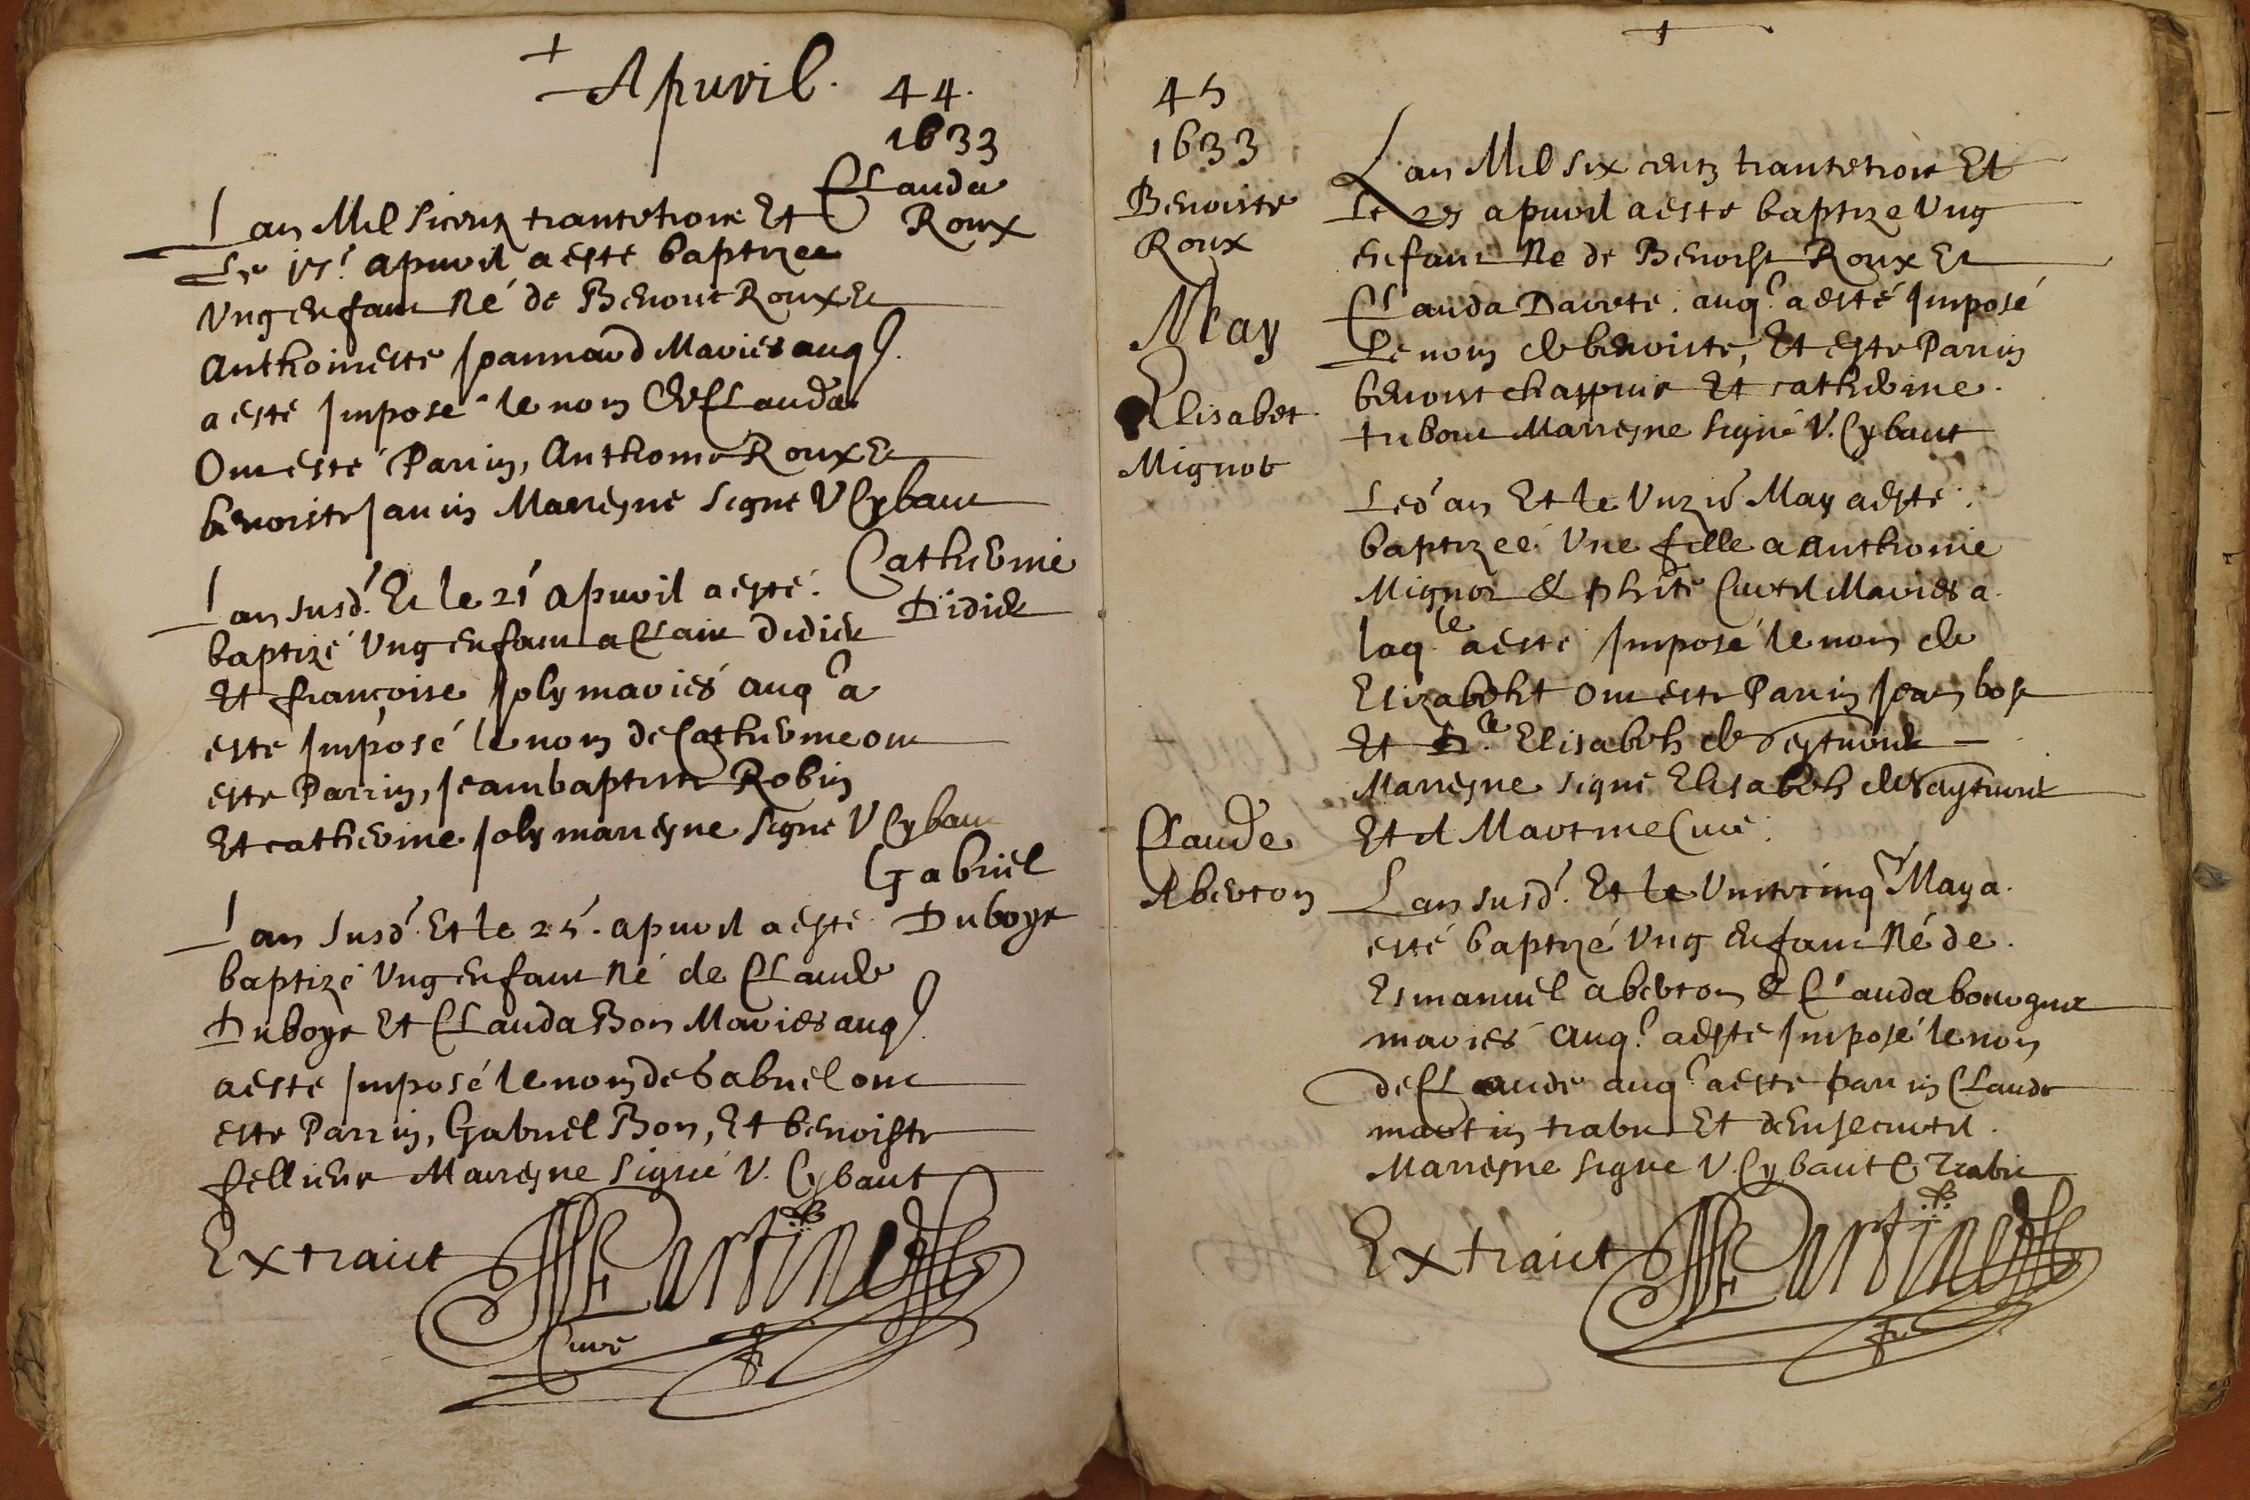 Apuril.
44.
1633
Clauda
Roux
Lan Mil sicentz trantetrois Et
Le 15e apuril a este baptizee
Vng enfant Né de Benoit Roux Et
Anthoinette Jpannard Mariés auql.
a esté Jmposé le nom de Clauda
Ont esté Parrin, Anthoine Roux Et
benoiste Janin Marreyne Signe V Cybaut
Catherine
Didier
Lan susd. Et le 21e apuril a esté.
baptizé Vng enfant a Clair didier
Et françoise Joly mariés auql a
esté Jmposé le nom de Catherine ont
esté Parrin, Jeambaptiste Robin
Et catherine Joly marreyne Signe V Cybaut
Gabriel
Duboys
Lan Susd. Et le 25. apuril a esté
baptizé Vng enfant Né de Claude
Duboys Et Clauda Bon Mariés auql.
a esté Jmposé le nom de Gabriel ont
esté Parrin, Gabriel Bon, Et benoiste
Marreyne Signé V. Cybaut
Extraict
Curé
45
1633
Benoiste
Roux
Lan Mil six centz trantetrois Et
Le 25 apuril a este baptize Vng
enfant Ne de Benoist Roux Et
Clauda auql a esté Jmposé
Le nom de benoiste, Et este Parrin
benoist chappuis Et catherine.
Marreyne Signé V. Cybaut
May
Elisabet
Mignot
Led an Et le Unzie May a esté.
baptizeé Vne fille a Anthoine
Mignot & phite Curtil Mariés a.
laqle a esté Jmposé le nom de
Elizabeht ont este Parrin Jean bos
Et Dlle Elisabeh de
Marreyne signe Elisabeh
Et d Martine Cure.
Claude
Aberton
Lan susd. Et le Vintcinqe May a.
esté baptizé Vng Enfant Né de.
Esmanuel aberton & Clauda
mariés auql a esté Jmposé le nom
de Claude auql a este parrin Claude
martin trabu Et
Marreyne Signe V. Cybaut C Trabu
Extraict